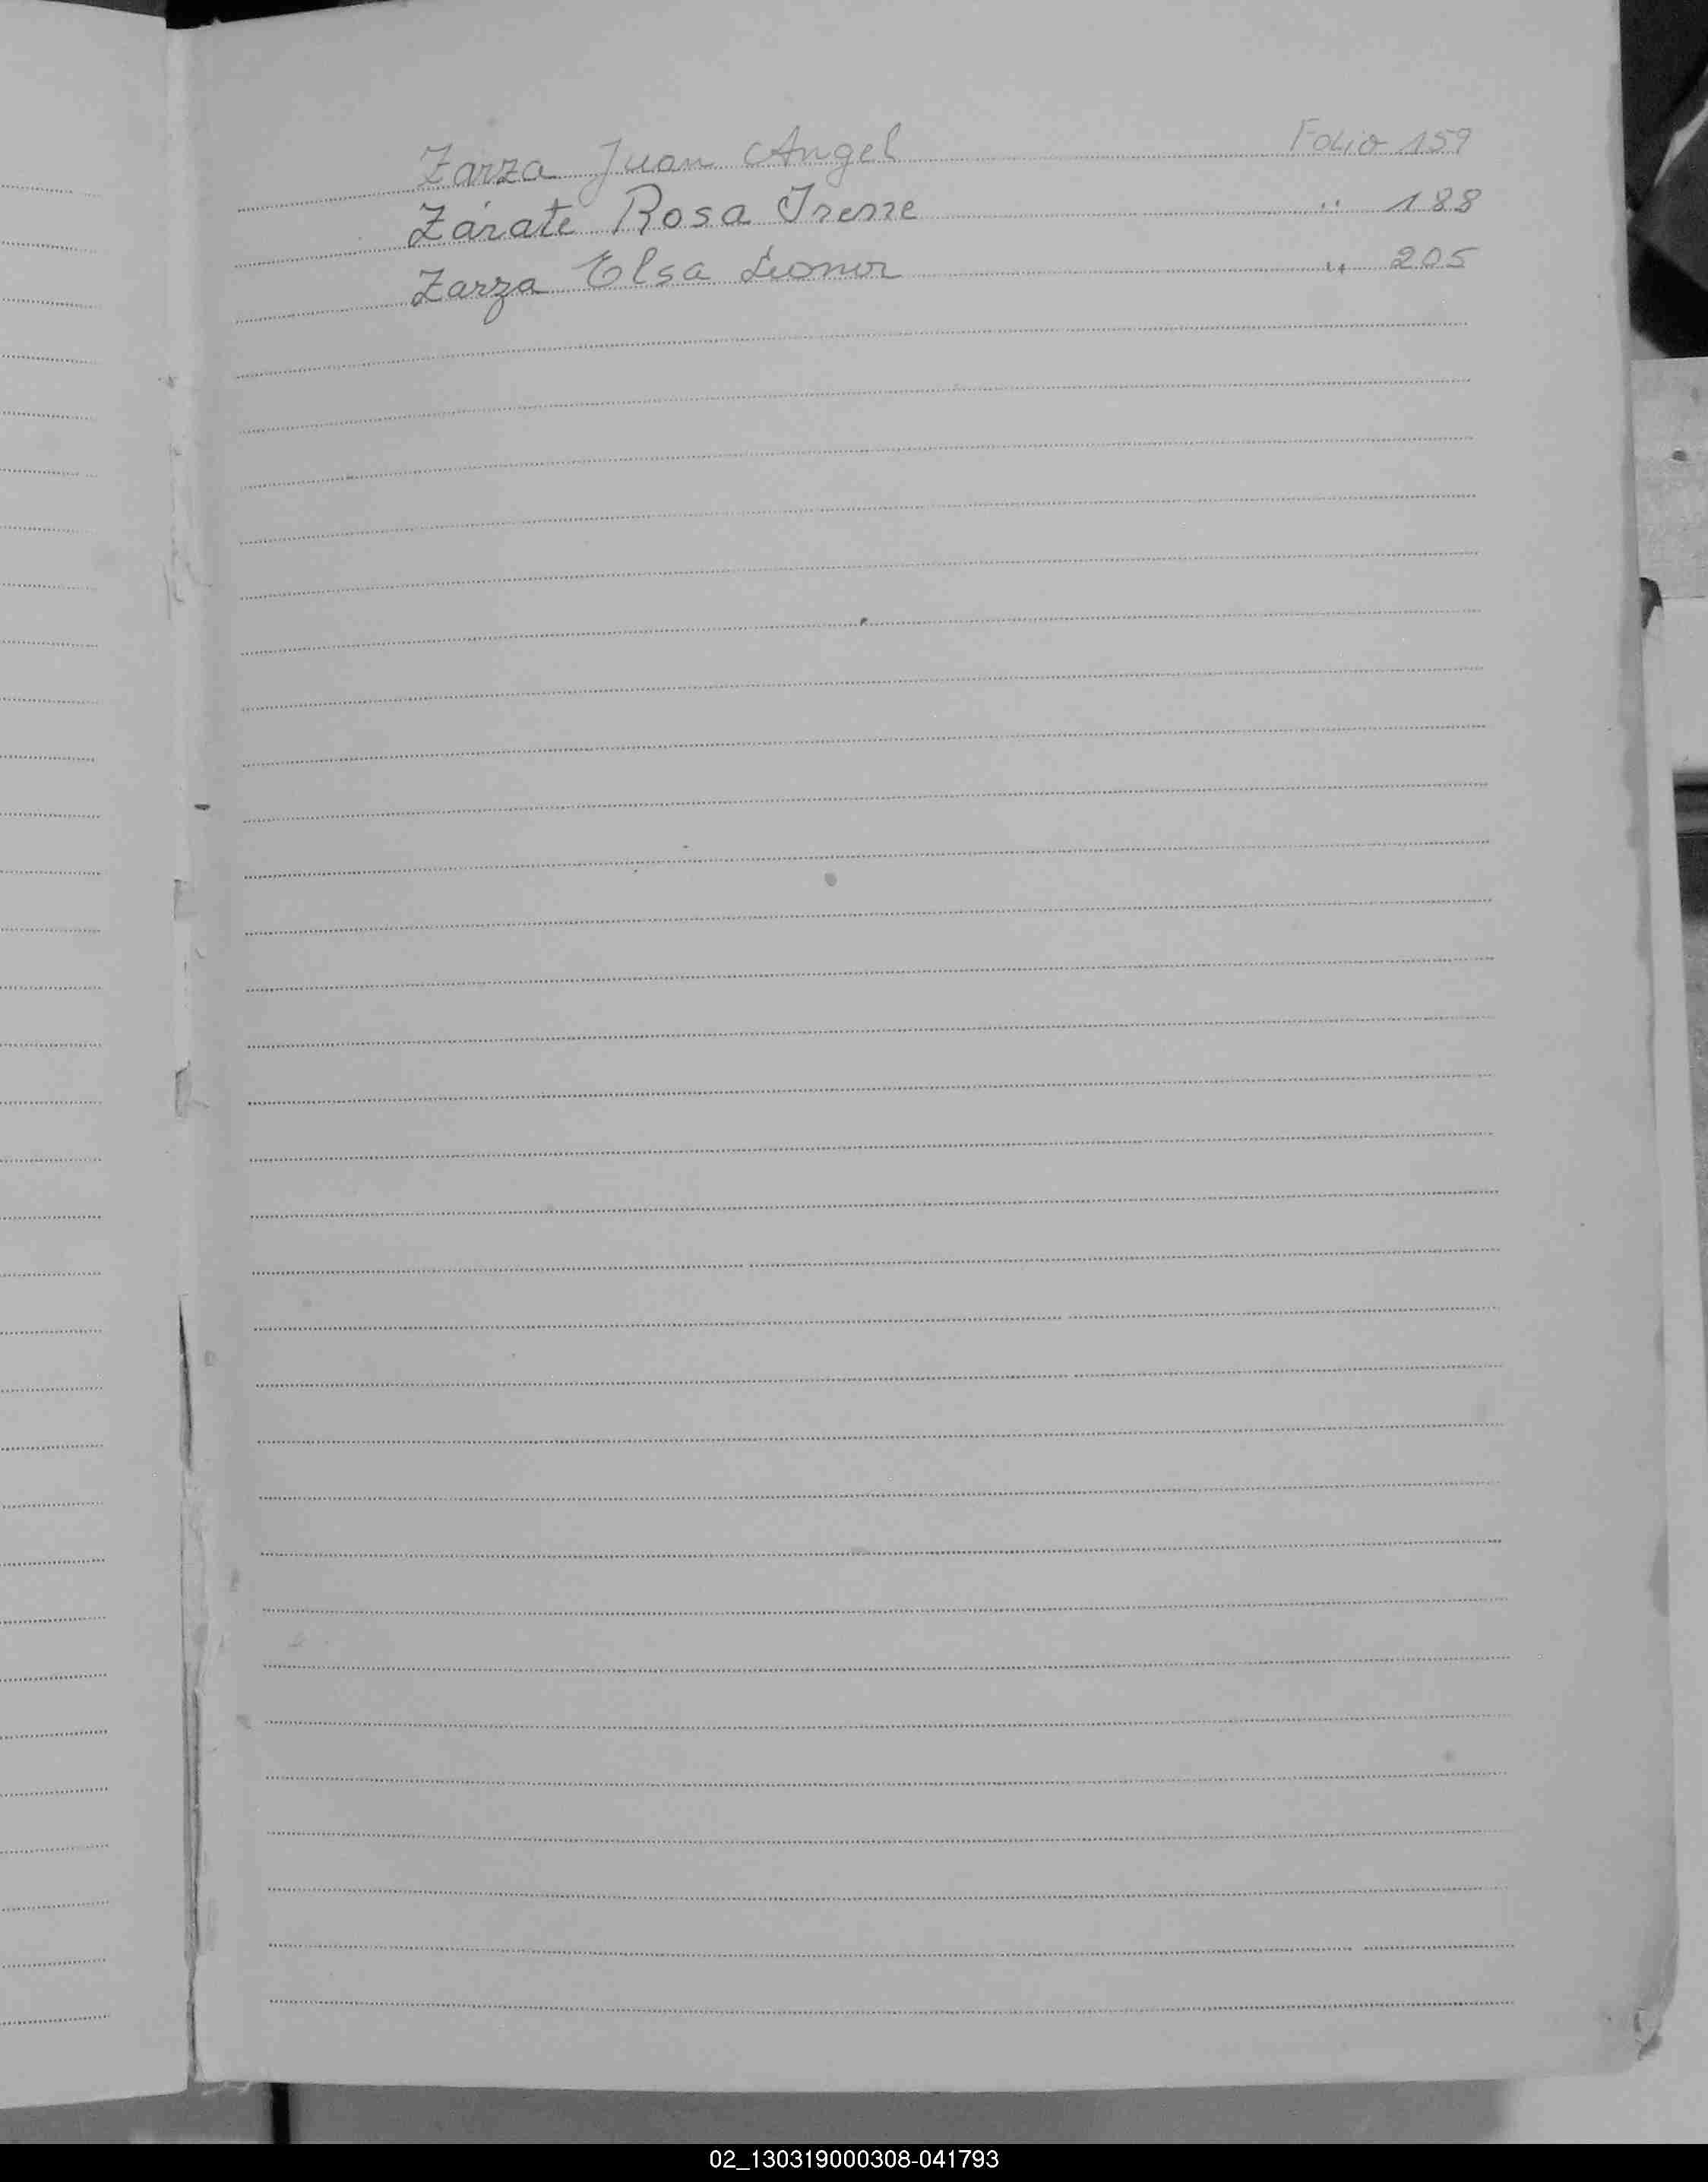 Zarza Juan Angel Folio 159
Zárate Rosa Irene " 188
Zarza Elsa Leonor " 205
02_130319000308-041793